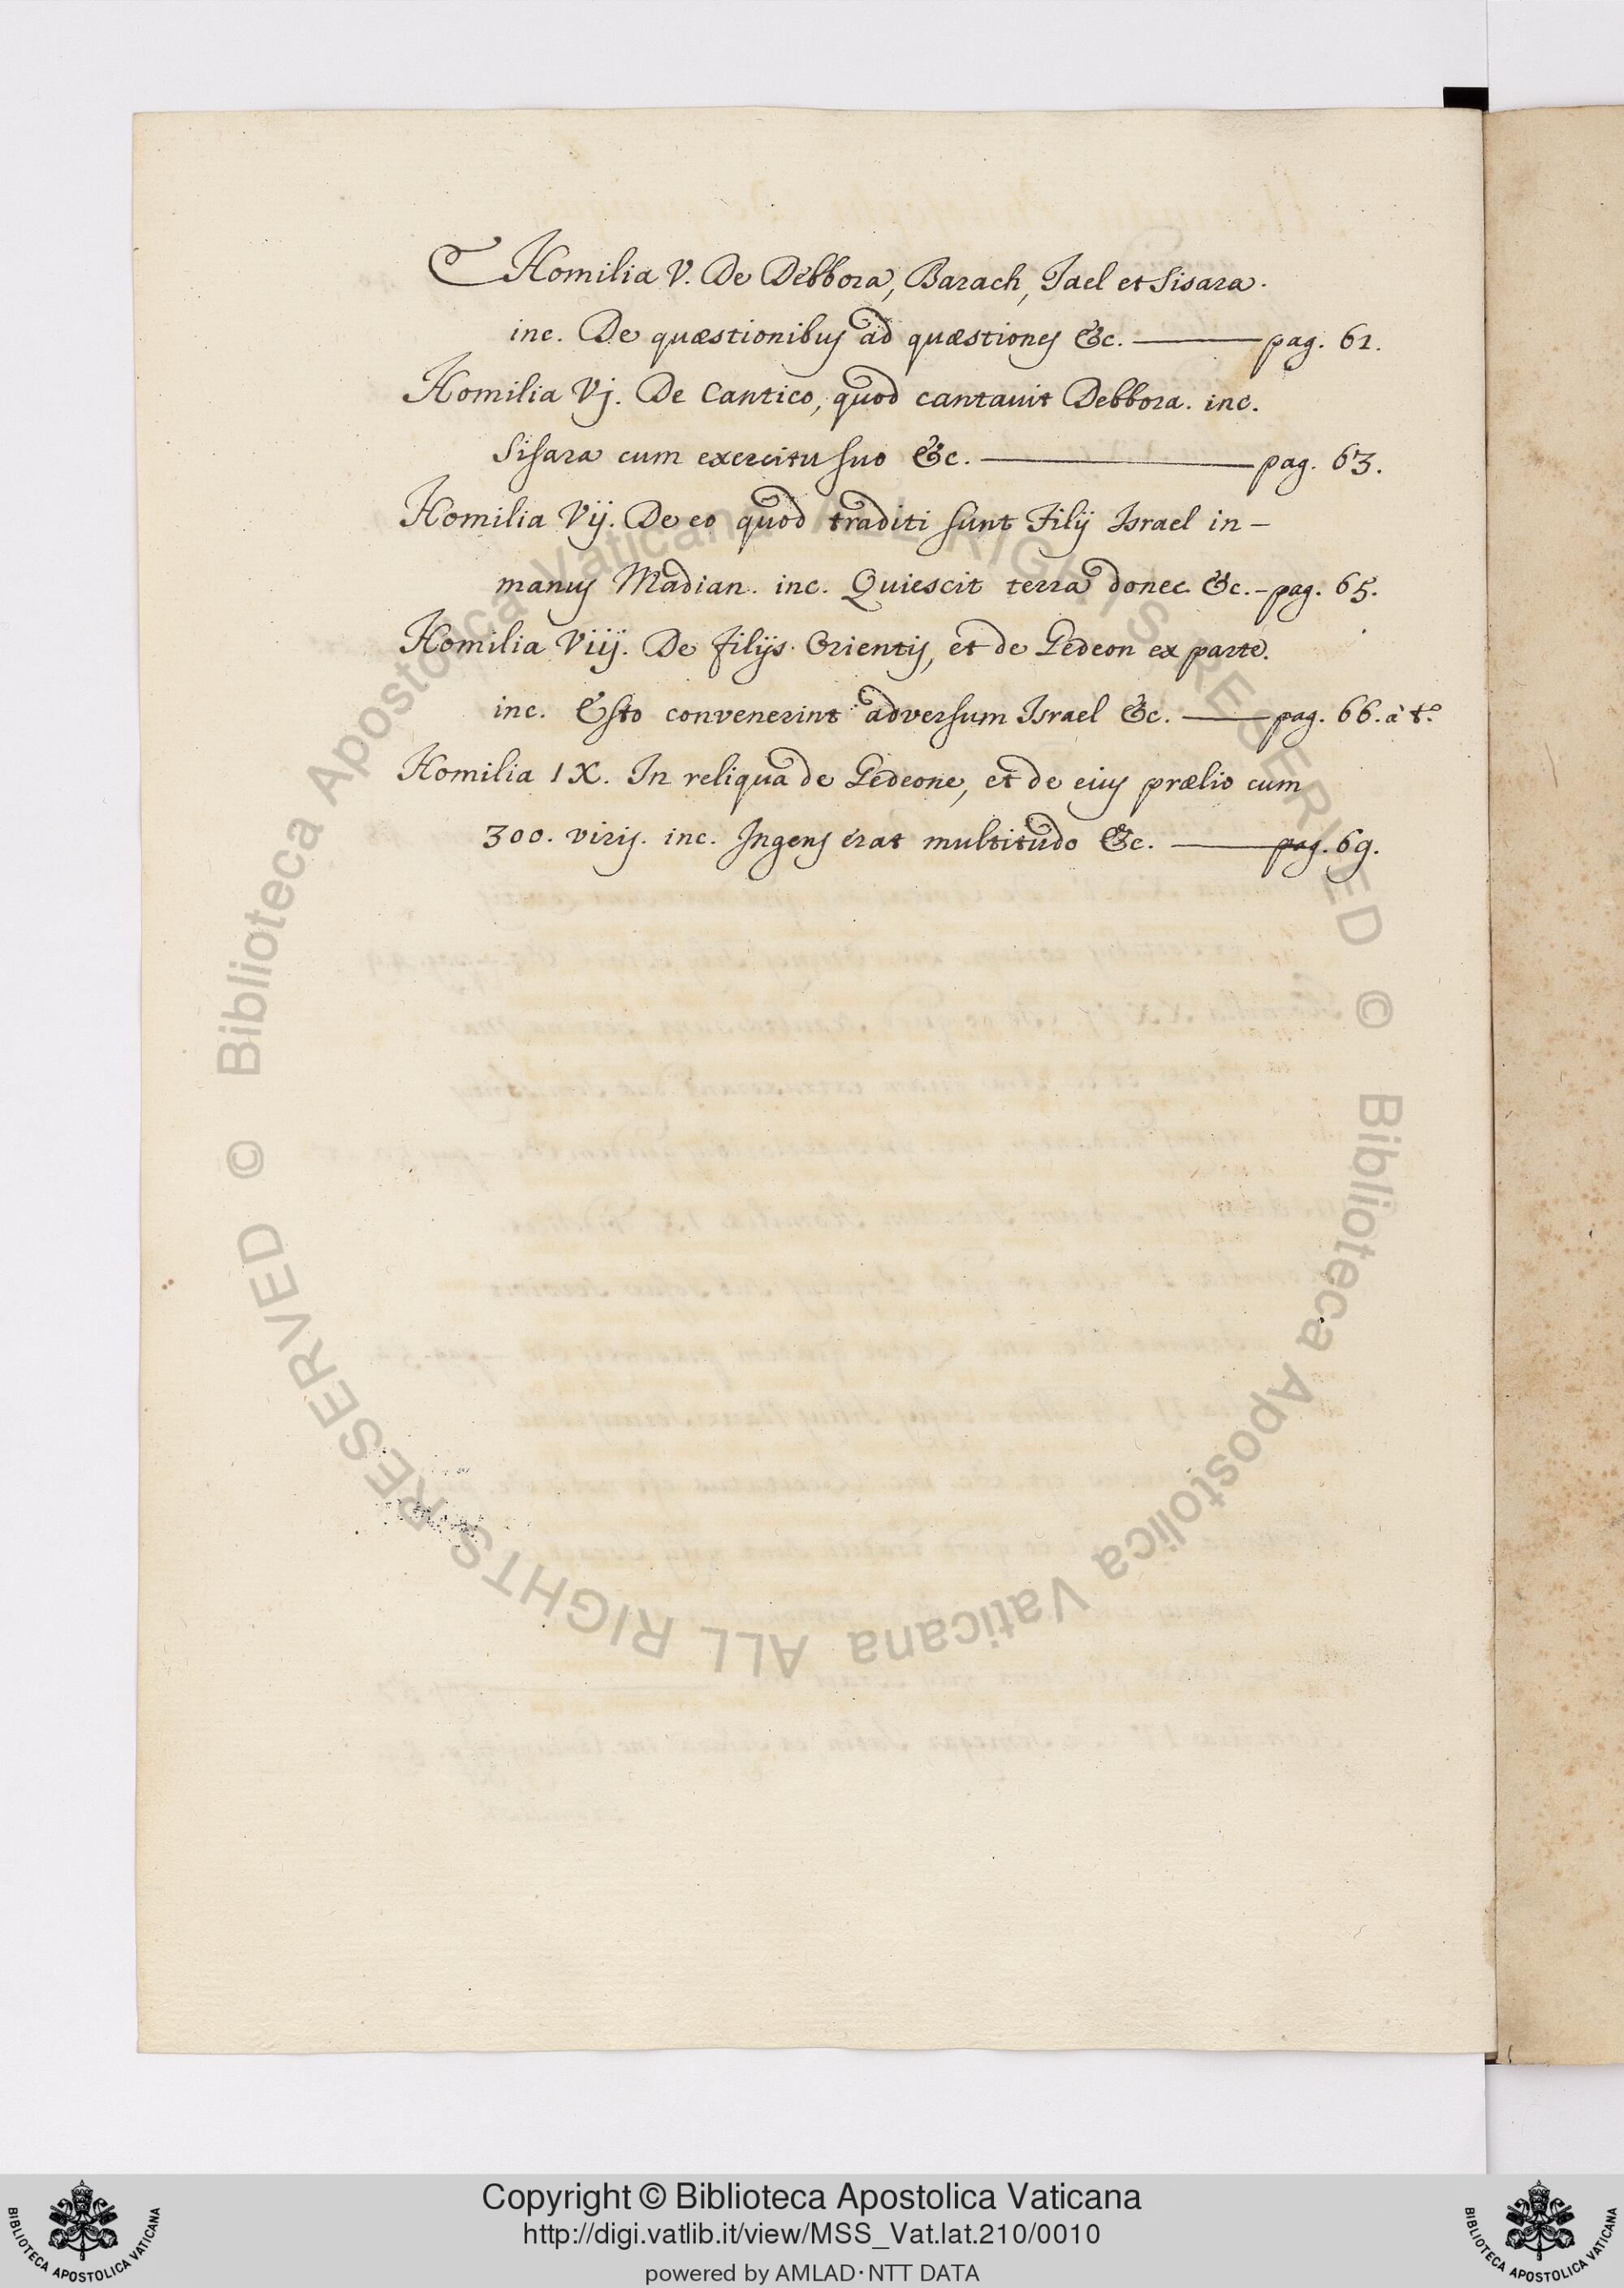 Homilia V. De Debbora, Barach, Jael et Sisara.
inc. De quæstionibus ad quæstiones &c. ——— pag. 61.
Homilia Vj. De Cantico, quod cantauit Debbora. inc.
Sisara cum exercitu suo &c. ——— pag. 63.
Homilia Vij. De eo quod traditi sunt Filij Israel in-
manus Madian. inc. Quiescit terra donec &c. - pag. 65.
Homilia Viij. De filijs Orientis, et de Gedeon ex parte.
inc. Esto convenerint adversum Israel &c. ——— pag. 66. à tº
Homilia IX. In reliqua de Gedeone, et de eius prælio cum
300. viris. inc. Ingens erat multitudo &c. ——— pag. 69.
© Biblioteca Apostolica Vaticana ALL RIGHTS RESERVED
© Biblioteca Apostolica Vaticana ALL RIGHTS RESERVED
Copyright © Biblioteca Apostolica Vaticana
http://digi.vatlib.it/view/MSS_Vat.lat.210/0010
powered by AMLAD·NTT DATA
BIBLIOTECA APOSTOLICA VATICANA
BIBLIOTECA APOSTOLICA VATICANA